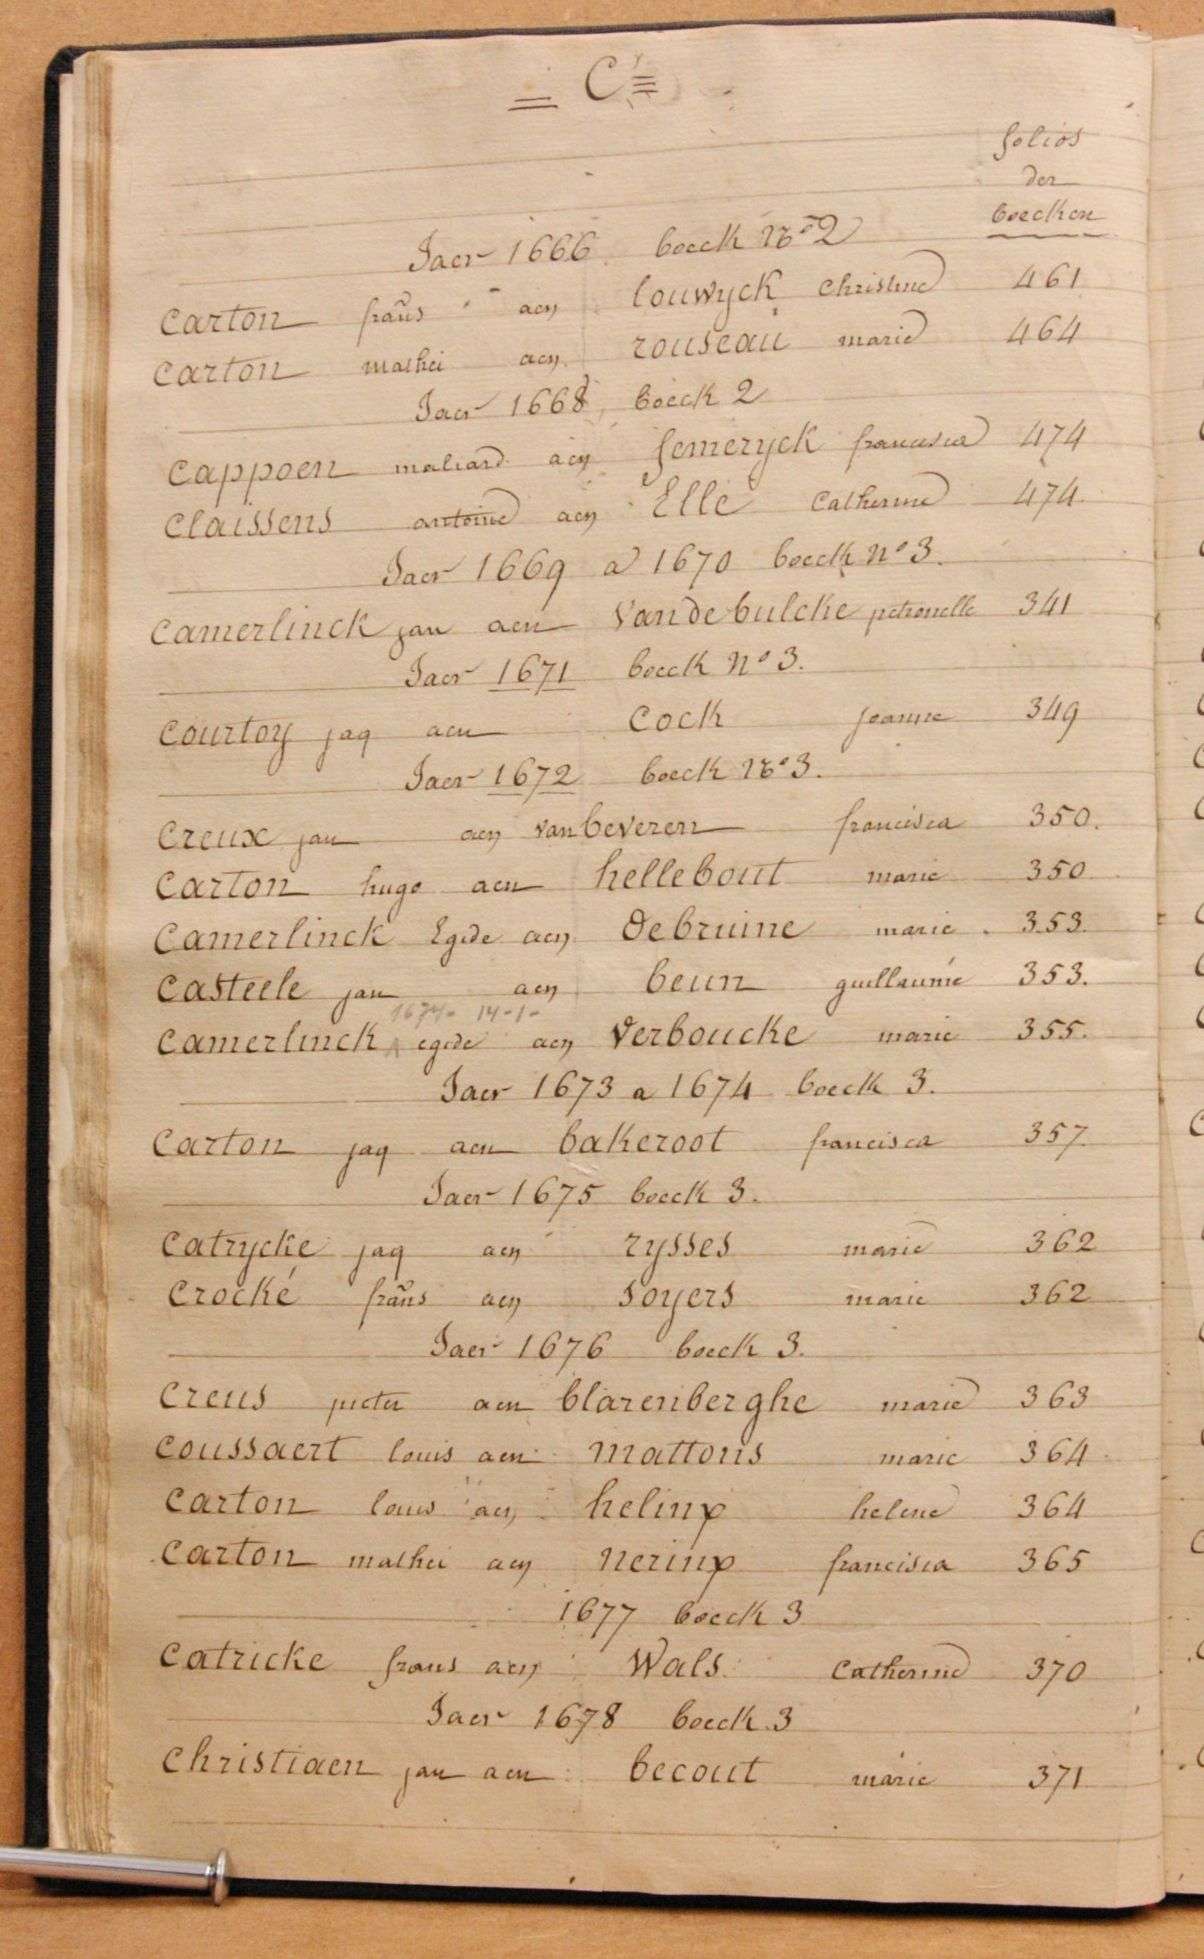 C
folios
der
boecken
Jaer 1666 boeck No 2
Carton frans aen louwyck christine 461
Carton mathei aen rouseau marie 464
Jaer 1668 boeck 2
Cappoen maliard aen femeryck francisca 474
Claissens antoine aen Elle Catherine 474
Jaer 1669 a 1670 boeck No 3.
Camerlinck jan aen Vandebulcke petronelle 341
Jaer 1671 boeck No 3.
Courtoy jaq aen Cock joanne 349
Jaer 1672 boeck No 3.
Creux jan aen van beveren francisca 350.
Carton hugo aen hellebout marie 350
Camerlinck Egide aen debruine marie 353.
Casteele jan aen beun guillaumie 353.
1674- 14-1-
Camerlinck egide aen Verboucke marie 355.
Jaer 1673 a 1674 boeck 3.
Carton jaq aen bakeroot francisca 357
Jaer 1675 boeck 3.
Catrycke jaq aen rysses marie 362
Crocké frans aen soyers marie 362
Jaer 1676 boeck 3.
Creus pieter aen blarenberghe marie 363
Coussaert louis aen mattons marie 364
Carton louis aen helinx helene 364
Carton mathei aen nerinx francisca 365
1677 boeck 3
Catricke frans aen Wals Catherine 370
Jaer 1678 boeck 3
Christiaen jan aen becout marie 371